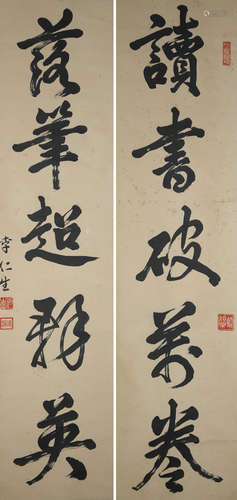 讀書破萬卷
落筆超群英
李仁生